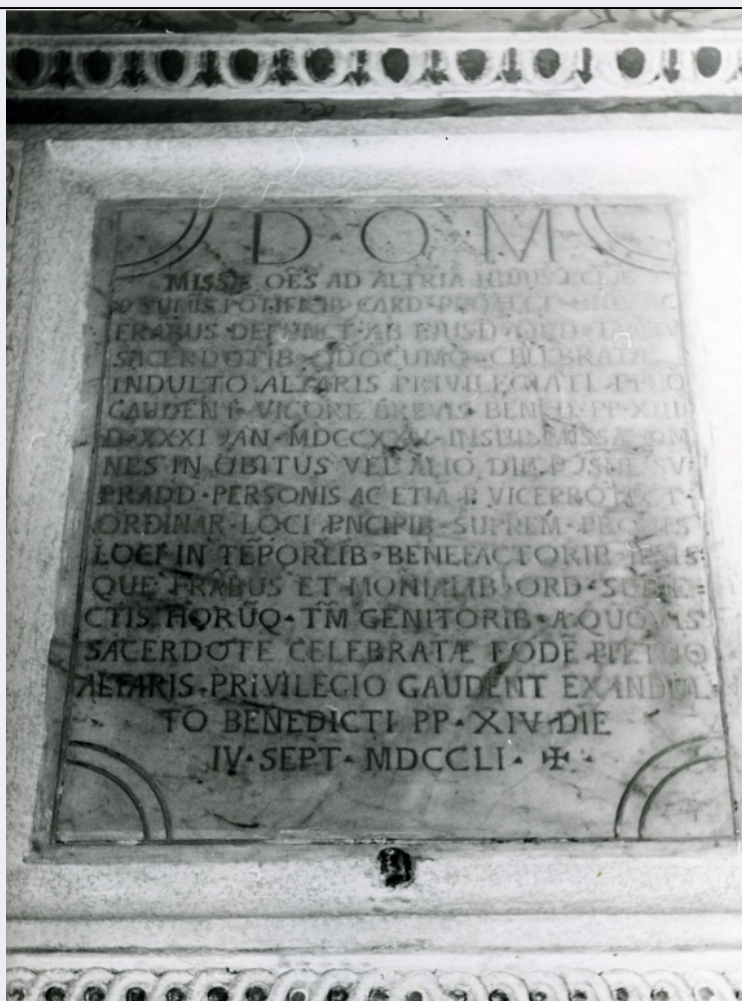 D · O · M
MISSÆ OẼS AD ALTRIA HUIUS ECLÆ
SUMIS POTIFICIB CARD PROTECT
DEFUNCT AB EJUSD ORD
SACERDOTIB QDOCUMQ CELEBRATÆ
INDULTO ALTARIS PRIVILEGIATI PPUO
GAUDENT VIGORE BREVIS BENED PP XIII
D XXXI JAN MDCCXXIV INSUP MISSÆ OM
NES IN OBITUS VEL ALIO DIE
PRADD · PERSONIS AC ETIA P VICEPROTECT ·
ORDINAR LOCI PNCIPIB SUPREM
LOCI IN TEPORLIB · BENEFACTORIB IPSIS
QUE FRABUS ET MONIALIB ORD · SUBIE
CTIS HORUQ · TM GENITORIB · A QUOVIS
SACERDOTE CELEBRATÆ EODẼ PPETUO
ALTARIS · PRIVILEGIO GAUDENT EX INDUL
TO BENEDICTI PP · XIV DIE
IV · SEPT · MDCCLI · ✠